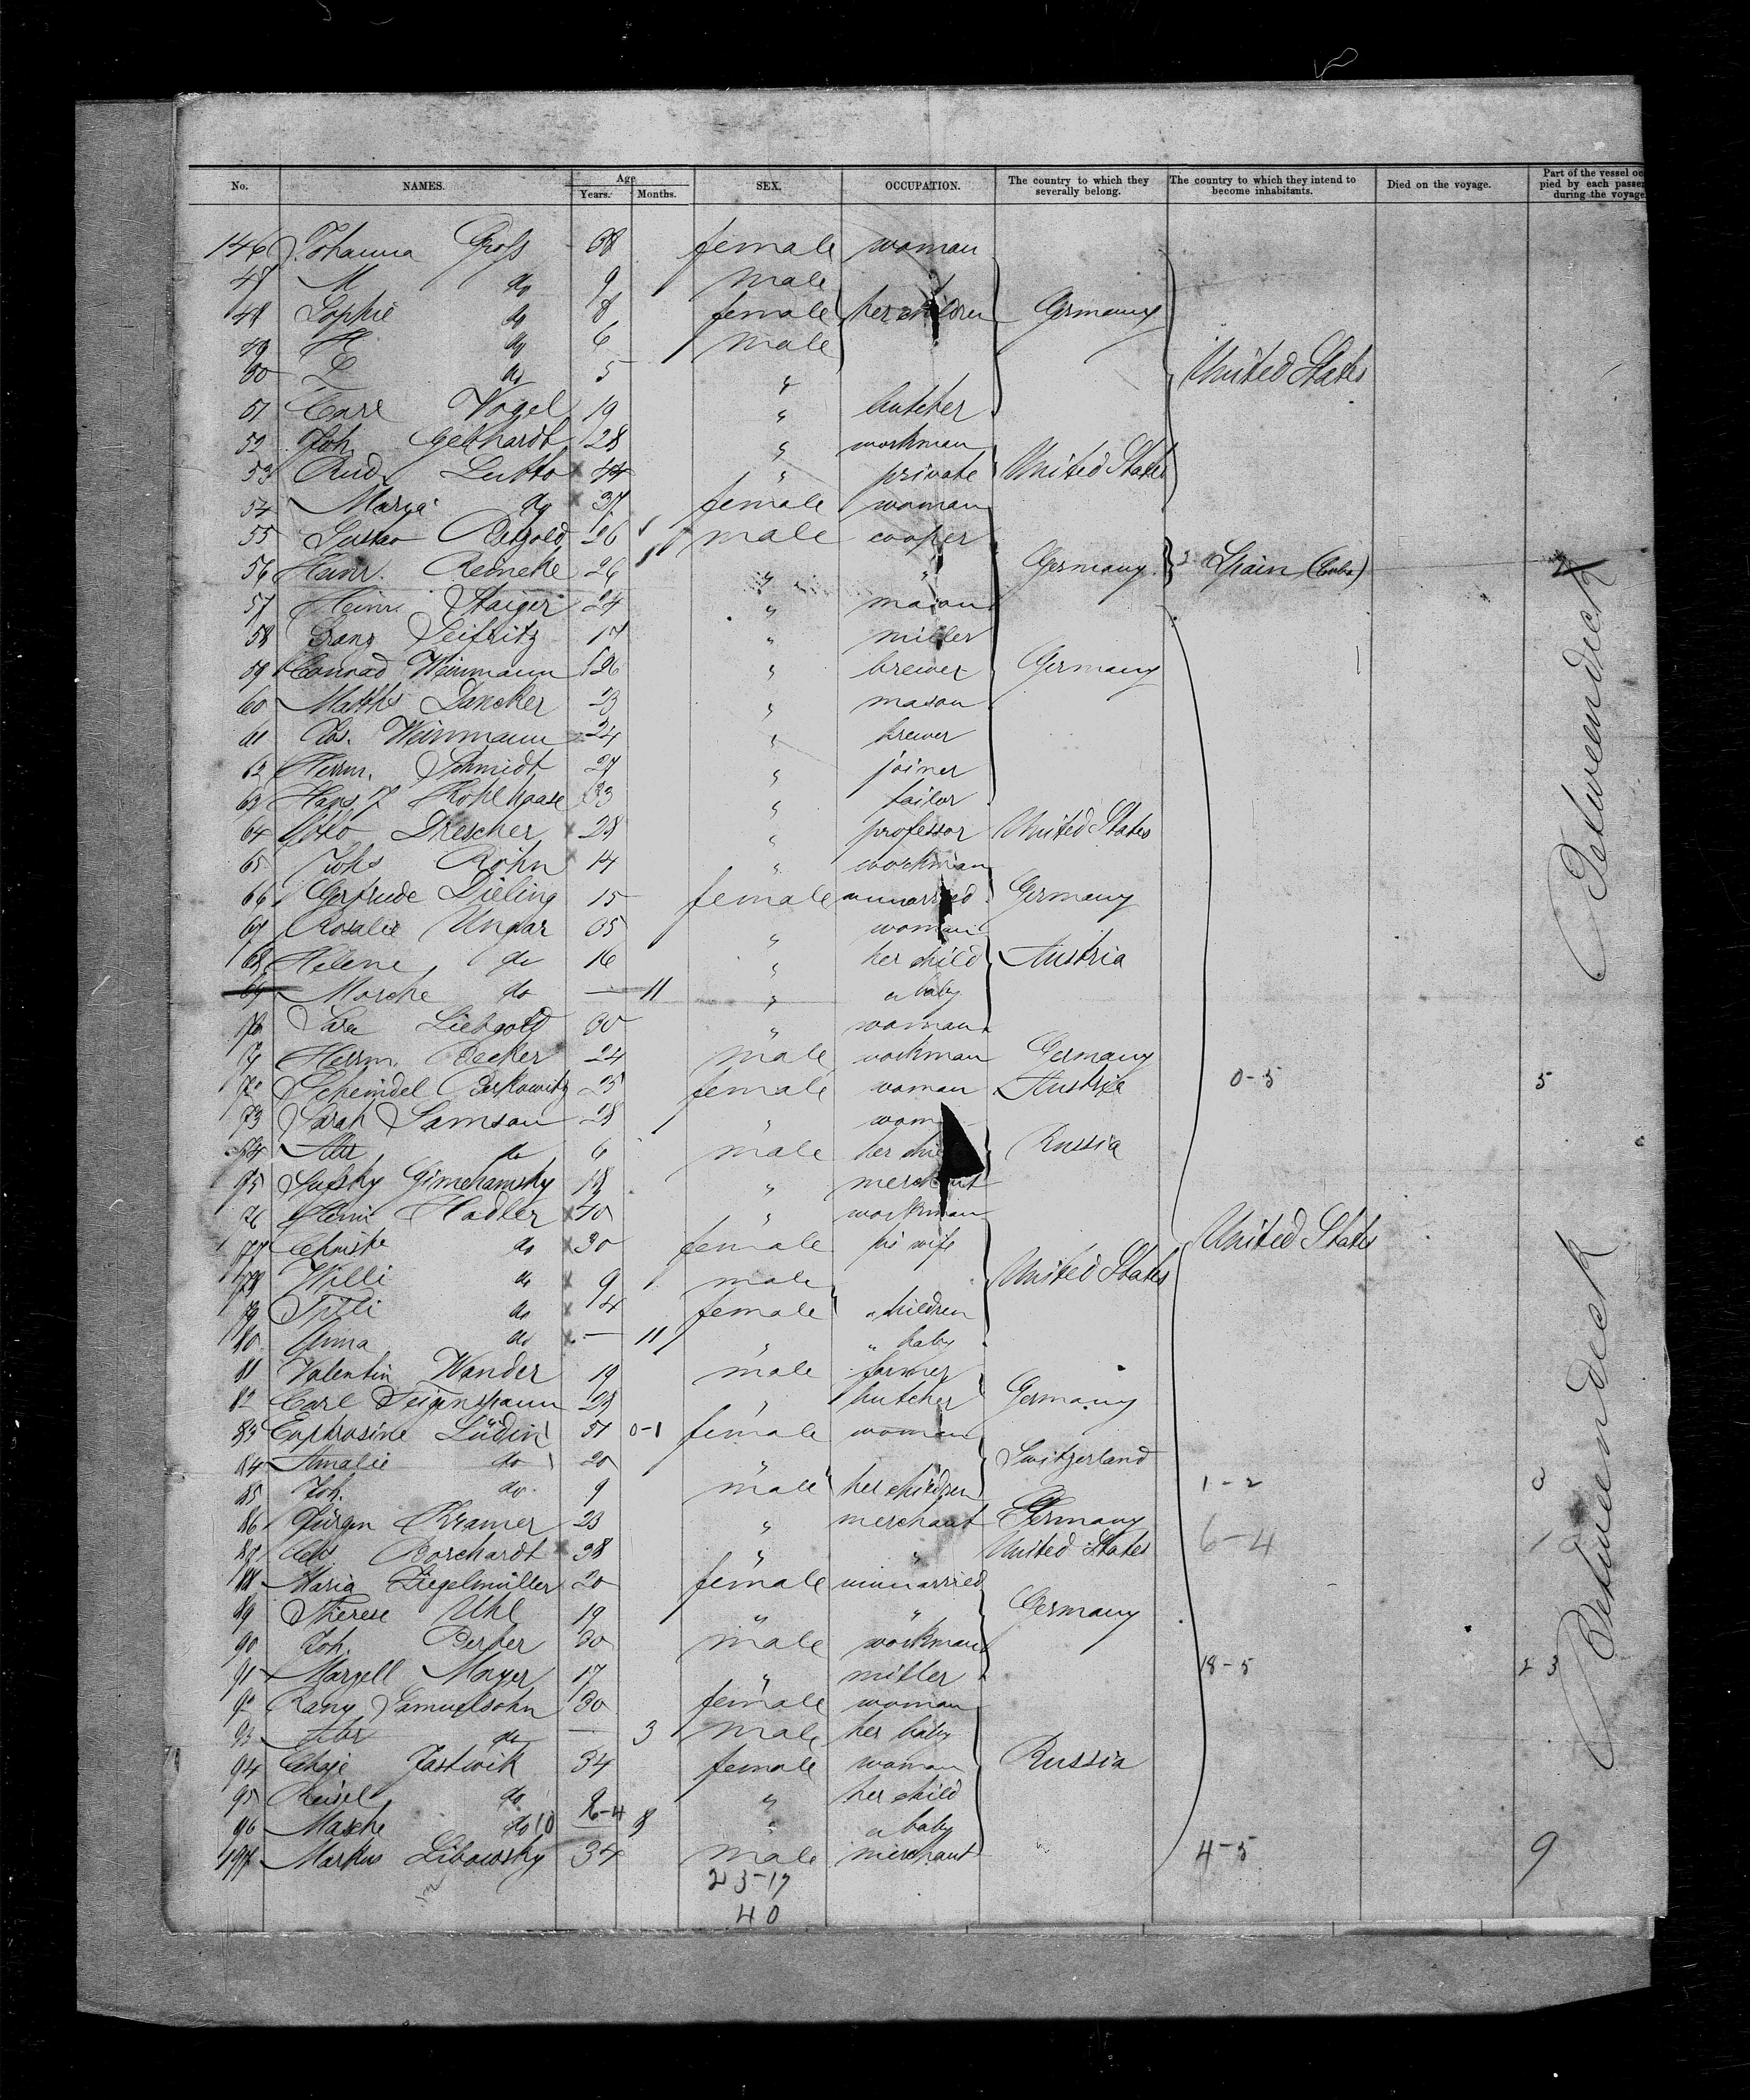 No. NAMES. Age Years. Months. SEX. OCCUPATION. The country to which they severally belong. The country to which they intend to become inhabitants. Died on the voyage. Part of the vessel oc pied by each passen during the voyage
146 Johanna Gross 38 female woman
47 M do 9 male
48 Sophie do 8 female her children Germany
49 H do 6 male
50 do 5 " United States
51 Carl Vogel 19 " butcher
52 Joh. Gebhardt 28 " workman
53 Rud. Lutto x 44 " private United States
54 Marya do x 37 female woman
55 Gustav Retzold 26 male cooper
56 Heinr. Reineke 26 " " Germany 2 Spain (Cuba)
57 Heinr. Staiger 24 " mason
58 Franz Seifritz 17 " miller
59 Conrad Weinmann 26 " brewer Germany
60 Matths Dancker 23 " mason
61 Ros. Weinmann 24 " brewer
62 Herm. Schmidt 27 " joiner
63 Hans J Kohlhaase 33 " tailor
64 Otto Drescher x 28 " professor United States
65 Johs Röhn x 14 " workman
66 Gertrude Dieling 15 female unmarried Germany
67 Rosalie Ungar 35 " woman
68 Helene do 16 " her child Austria
69 Mosche do — 11 " a baby
70 Sara Liebgold 30 " woman
71 Herm. Becker 24 male workman Germany
72 Scheindel Berkowitz 25 female woman Austria 0-5 5
73 Sarah Samson 28 " wom
74 do 6 male her chi Russia
75 18 " merchant
76 Heinr Hadler x 40 " workman
77 Christe do x 30 female his wife United States
78 Willi do x 9 male United States
79 Tilli do x 4 female " children
80 Anna do x — 11 " " baby
81 Valentin Wander 19 male farmer
82 Carl Feigenspann 23 " butcher Germany
83 Euphrosine Lüdin 51 0-1 female woman
84 Amalie do 20 " Switzerland
85 Joh. do 9 male her children 1-2 3
86 Jürgen Kramer 23 " merchant Germany
87 Borchardt x 38 " " United States 6-4 1
88 Maria Ziegelmüller 20 female unmarried
89 Therese Uhl 19 " " Germany
90 Joh. Berber 30 male workman
91 Margell Mayer 17 " miller 18-5 23
92 Samuelsohn 30 female woman
93 Abr do — 3 male her baby
94 Chaje Jastwik 34 female woman Russia
95 Reisel do " her child
96 Masche do 10 8 " a baby
197 Markus Libowsky 34 male merchant 4-5 9
23-17
40
Betweendeck
Betweendeck